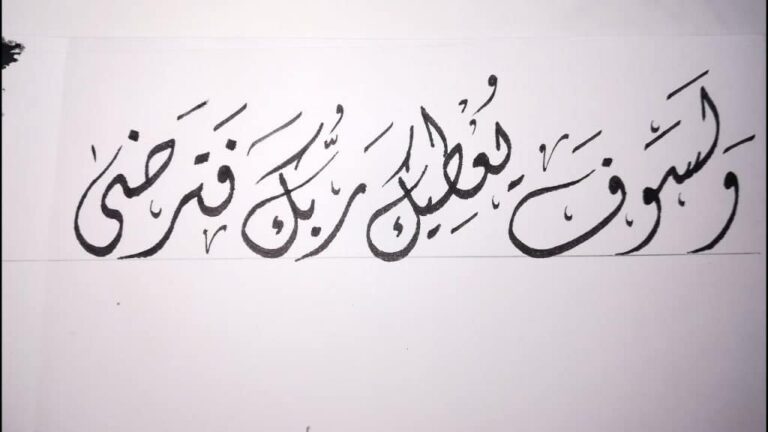 وَلَسَوفَ يُعْطِيكَ رَبُّكَ فَتَرضَىٰ